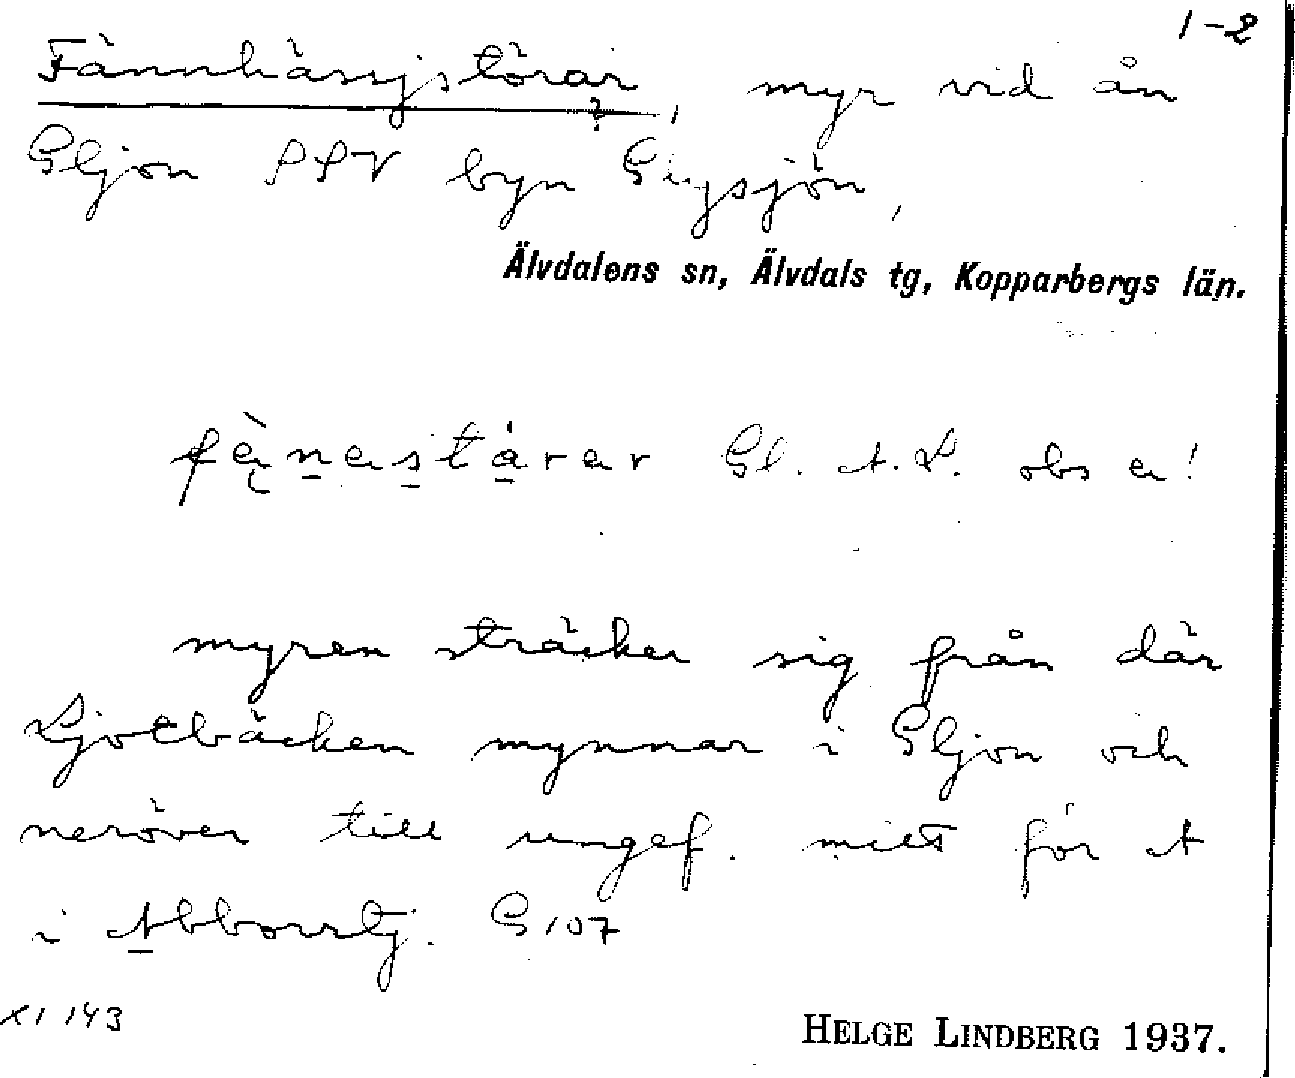 1-2
Fännhässjstörar, myr vid ån
Gljon SSV byn Gligsjön,
Älvdalens sn, Älvdals tg, Kopparbergs län.
Gl. A.L. obs a!
myren sträcker sig från där
Ljotbäcken mynnar i Gljon och
neröver till ungef. mitt för A
i Abborrtj. G107
XI 143
HELGE LINDBERG 1937.